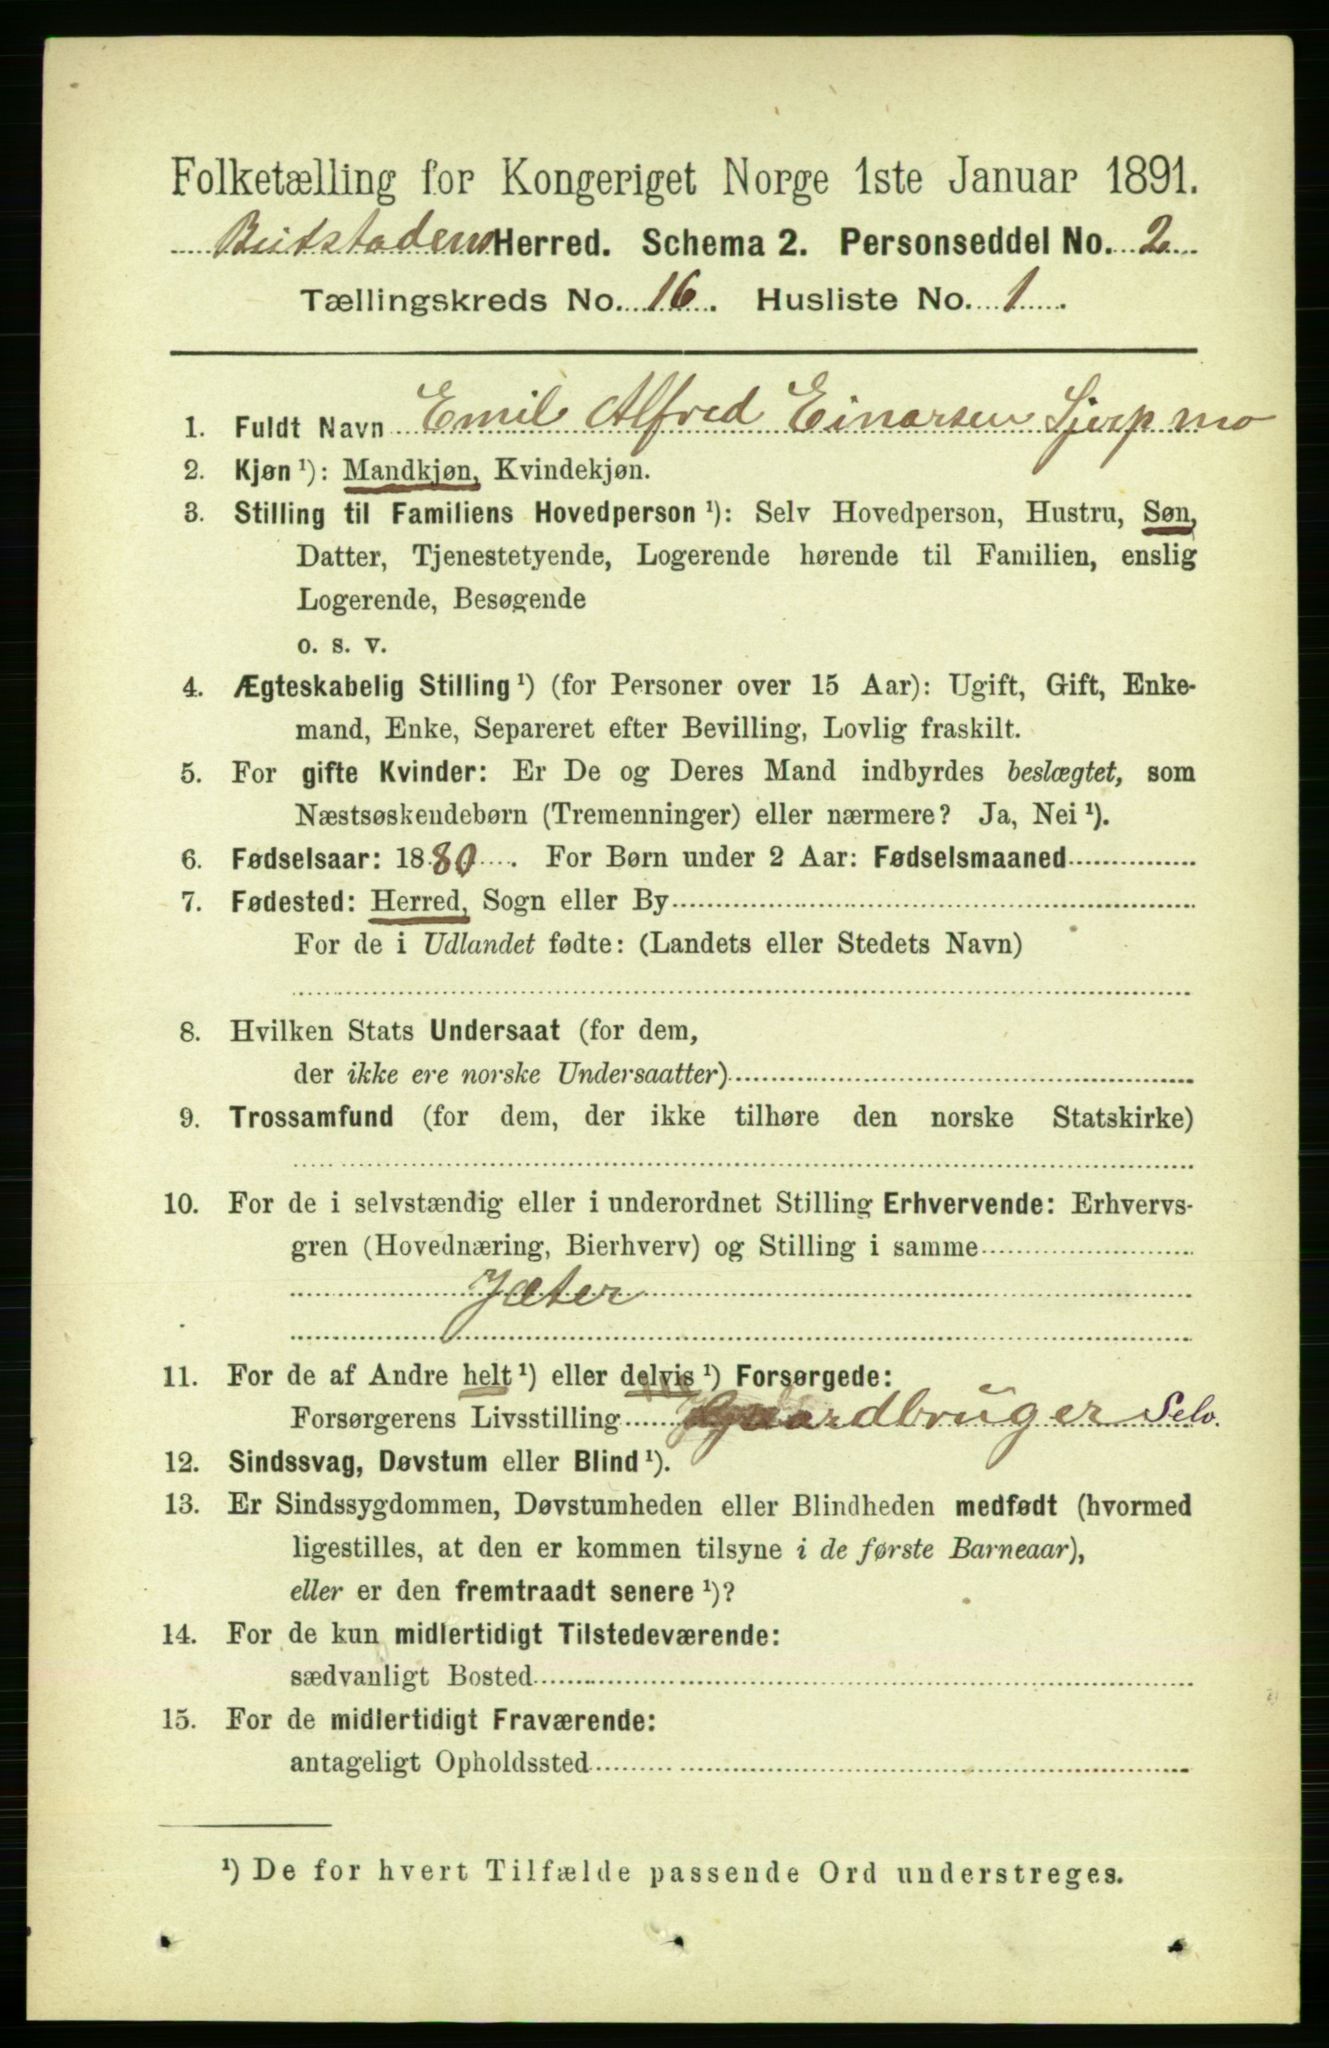 Folketælling for Kongeriget Norge 1ste Januar 1891.
Beitstadens Herred. Schema 2. Personseddel No. 2
Tællingskreds No. 16. Husliste No. 1.
1. Fuldt Navn Emil Alfred Einarsen
2. Kjøn ¹): Mandkjøn, Kvindekjøn.
3. Stilling til Familiens Hovedperson ¹): Selv Hovedperson, Hustru, Søn,
Datter, Tjenestetyende, Logerende hørende til Familien, enslig
Logerende, Besøgende
o. s. v.
4. Ægteskabelig Stilling ¹) (for Personer over 15 Aar): Ugift, Gift, Enke-
mand, Enke, Separeret efter Bevilling, Lovlig fraskilt.
5. For gifte Kvinder: Er De og Deres Mand indbyrdes beslægtet, som
Næstsøskendebørn (Tremenninger) eller nærmere? Ja, Nei ¹).
6. Fødselsaar: 1880. For Børn under 2 Aar: Fødselsmaaned
7. Fødested: Herred, Sogn eller By
For de i Udlandet fødte: (Landets eller Stedets Navn)
8. Hvilken Stats Undersaat (for dem,
der ikke ere norske Undersaatter)
9. Trossamfund (for dem, der ikke tilhøre den norske Statskirke)
10. For de i selvstændig eller i underordnet Stilling Erhvervende: Erhvervs-
gren (Hovednæring, Bierhverv) og Stilling i samme
Jæter
11. For de af Andre helt ¹) eller delvis ¹) Forsørgede:
Forsørgerens Livsstilling Gaardbruger Selv.
12. Sindssvag, Døvstum eller Blind ¹).
13. Er Sindssygdommen, Døvstumheden eller Blindheden medfødt (hvormed
ligestilles, at den er kommen tilsyne i de første Barneaar),
eller er den fremtraadt senere ¹)?
14. For de kun midlertidigt Tilstedeværende:
sædvanligt Bosted
15. For de midlertidigt Fraværende:
antageligt Opholdssted
¹) De for hvert Tilfælde passende Ord understreges.